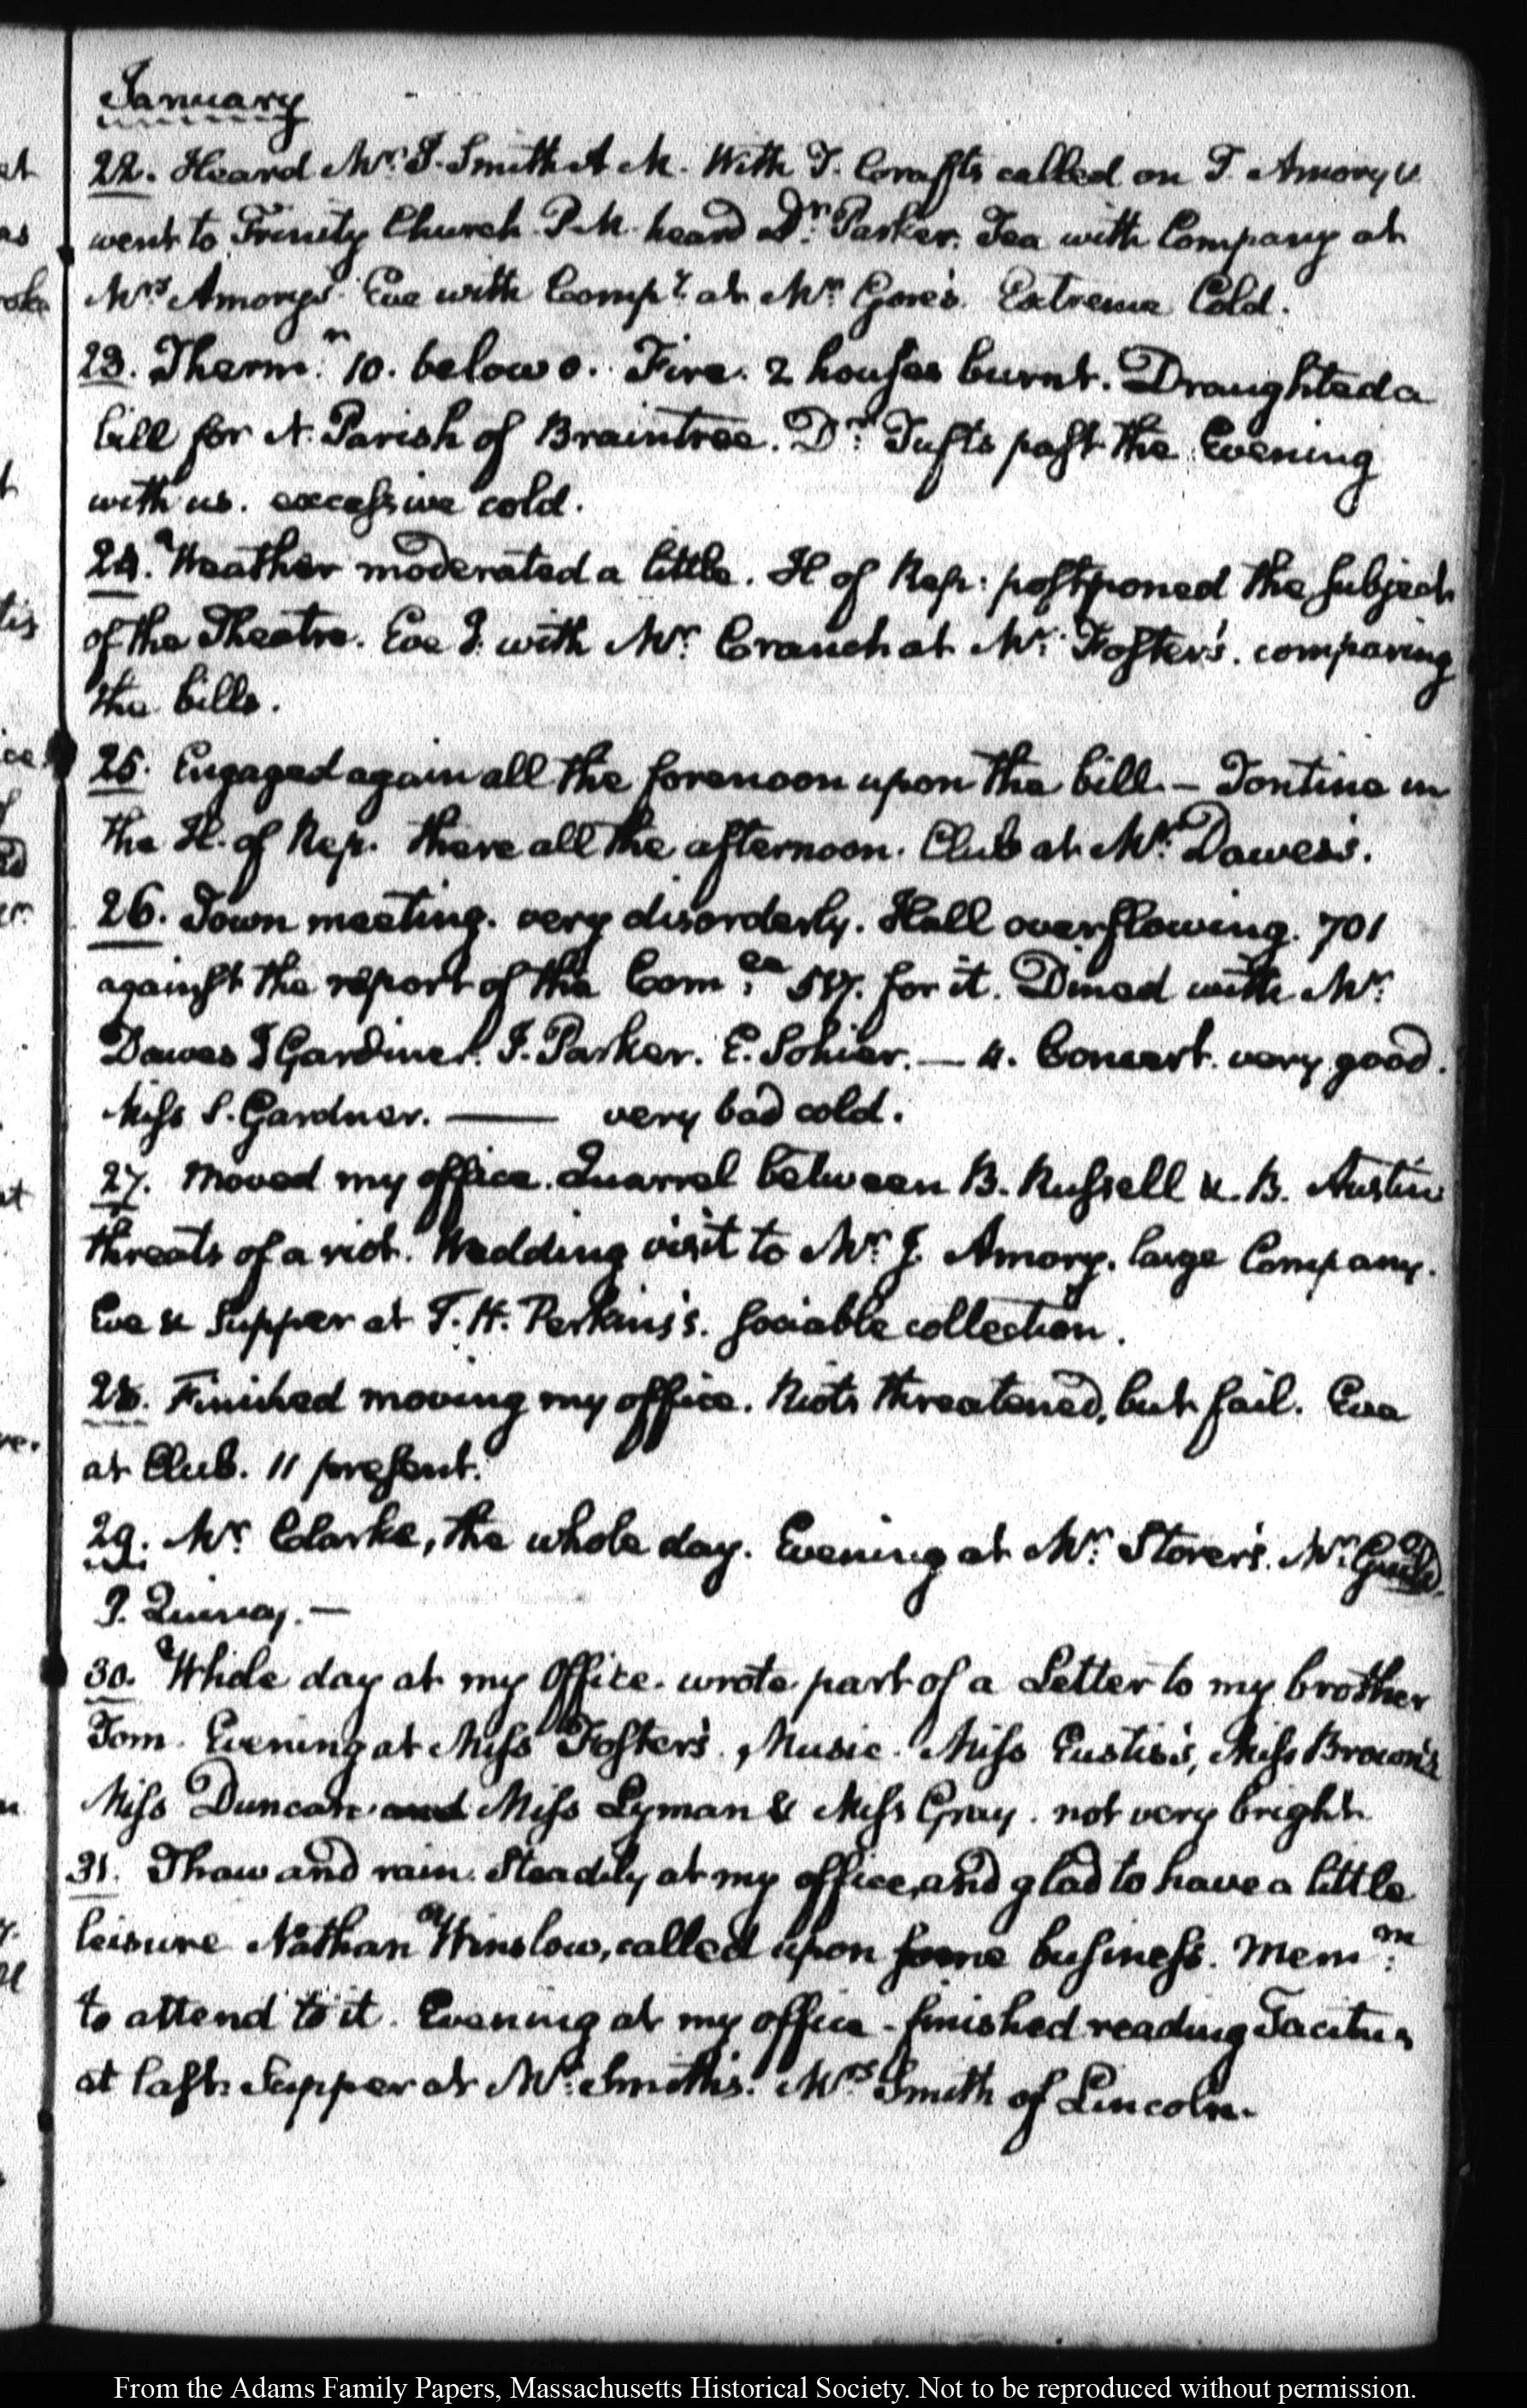 January
22. Heard Mr. J. Smith A M. With T. Crafts called on T. Amory &
went to Trinity Church P.M. heard Dr. Parker. Tea with Company at
Mrs Amory's. Eve with Compy. at Mr. Gore's. Extreme Cold.
23. Therm.m 10. below 0. Fire. 2 houses burnt. Draughted a
bill for N. Parish of Braintree. Dr. Tufts past the Evening
with us. excessive cold.
24. Weather moderated a little. H of Rep: postponed the subject
of the Theatre. Eve I. with Mr. Cranch at Mr. Foster's. comparing
the bills.
25. Engaged again all the forenoon upon the bill. — Tontine in
the H. of Rep. there all the afternoon. Club at Mr. Dawes's.
26. Town meeting. very disorderly. Hall overflowing. 701
against the report of the Com:ee 517. for it. Dined with Mr.
Dawes J Gardiner. J. Parker. E. Sohier. — 4. Concert. very good.
Miss S. Gardner. — very bad cold.
27. Moved my office. Quarrel between B. Russell & B. Austin
threats of a riot. Wedding visit to Mr J. Amory. large Company.
Eve & Supper at T. H. Perkins's. sociable collection.
28. Finished moving my office. Riots threatened, but fail. Eve
at Club. 11 present.
29. Mr. Clarke, the whole day. Evening at Mr. Storer's. Mr.
J. Quincy. —
30. Whole day at my Office. wrote part of a Letter to my brother
Tom. Evening at Miss Foster's. Music. Miss Eustis's, Miss Brown's
Miss Duncan and Miss Lyman & Miss Gray. not very bright.
31. Thaw and rain. Steadily at my office, and glad to have a little
leisure Nathan Winslow, called upon some business. Mem:m
to attend to it. Evening at my office - finished reading Tacitus
at last. Supper at Mr. Smith's. Mrs Smith of Lincoln.
From the Adams Family Papers, Massachusetts Historical Society. Not to be reproduced without permission.